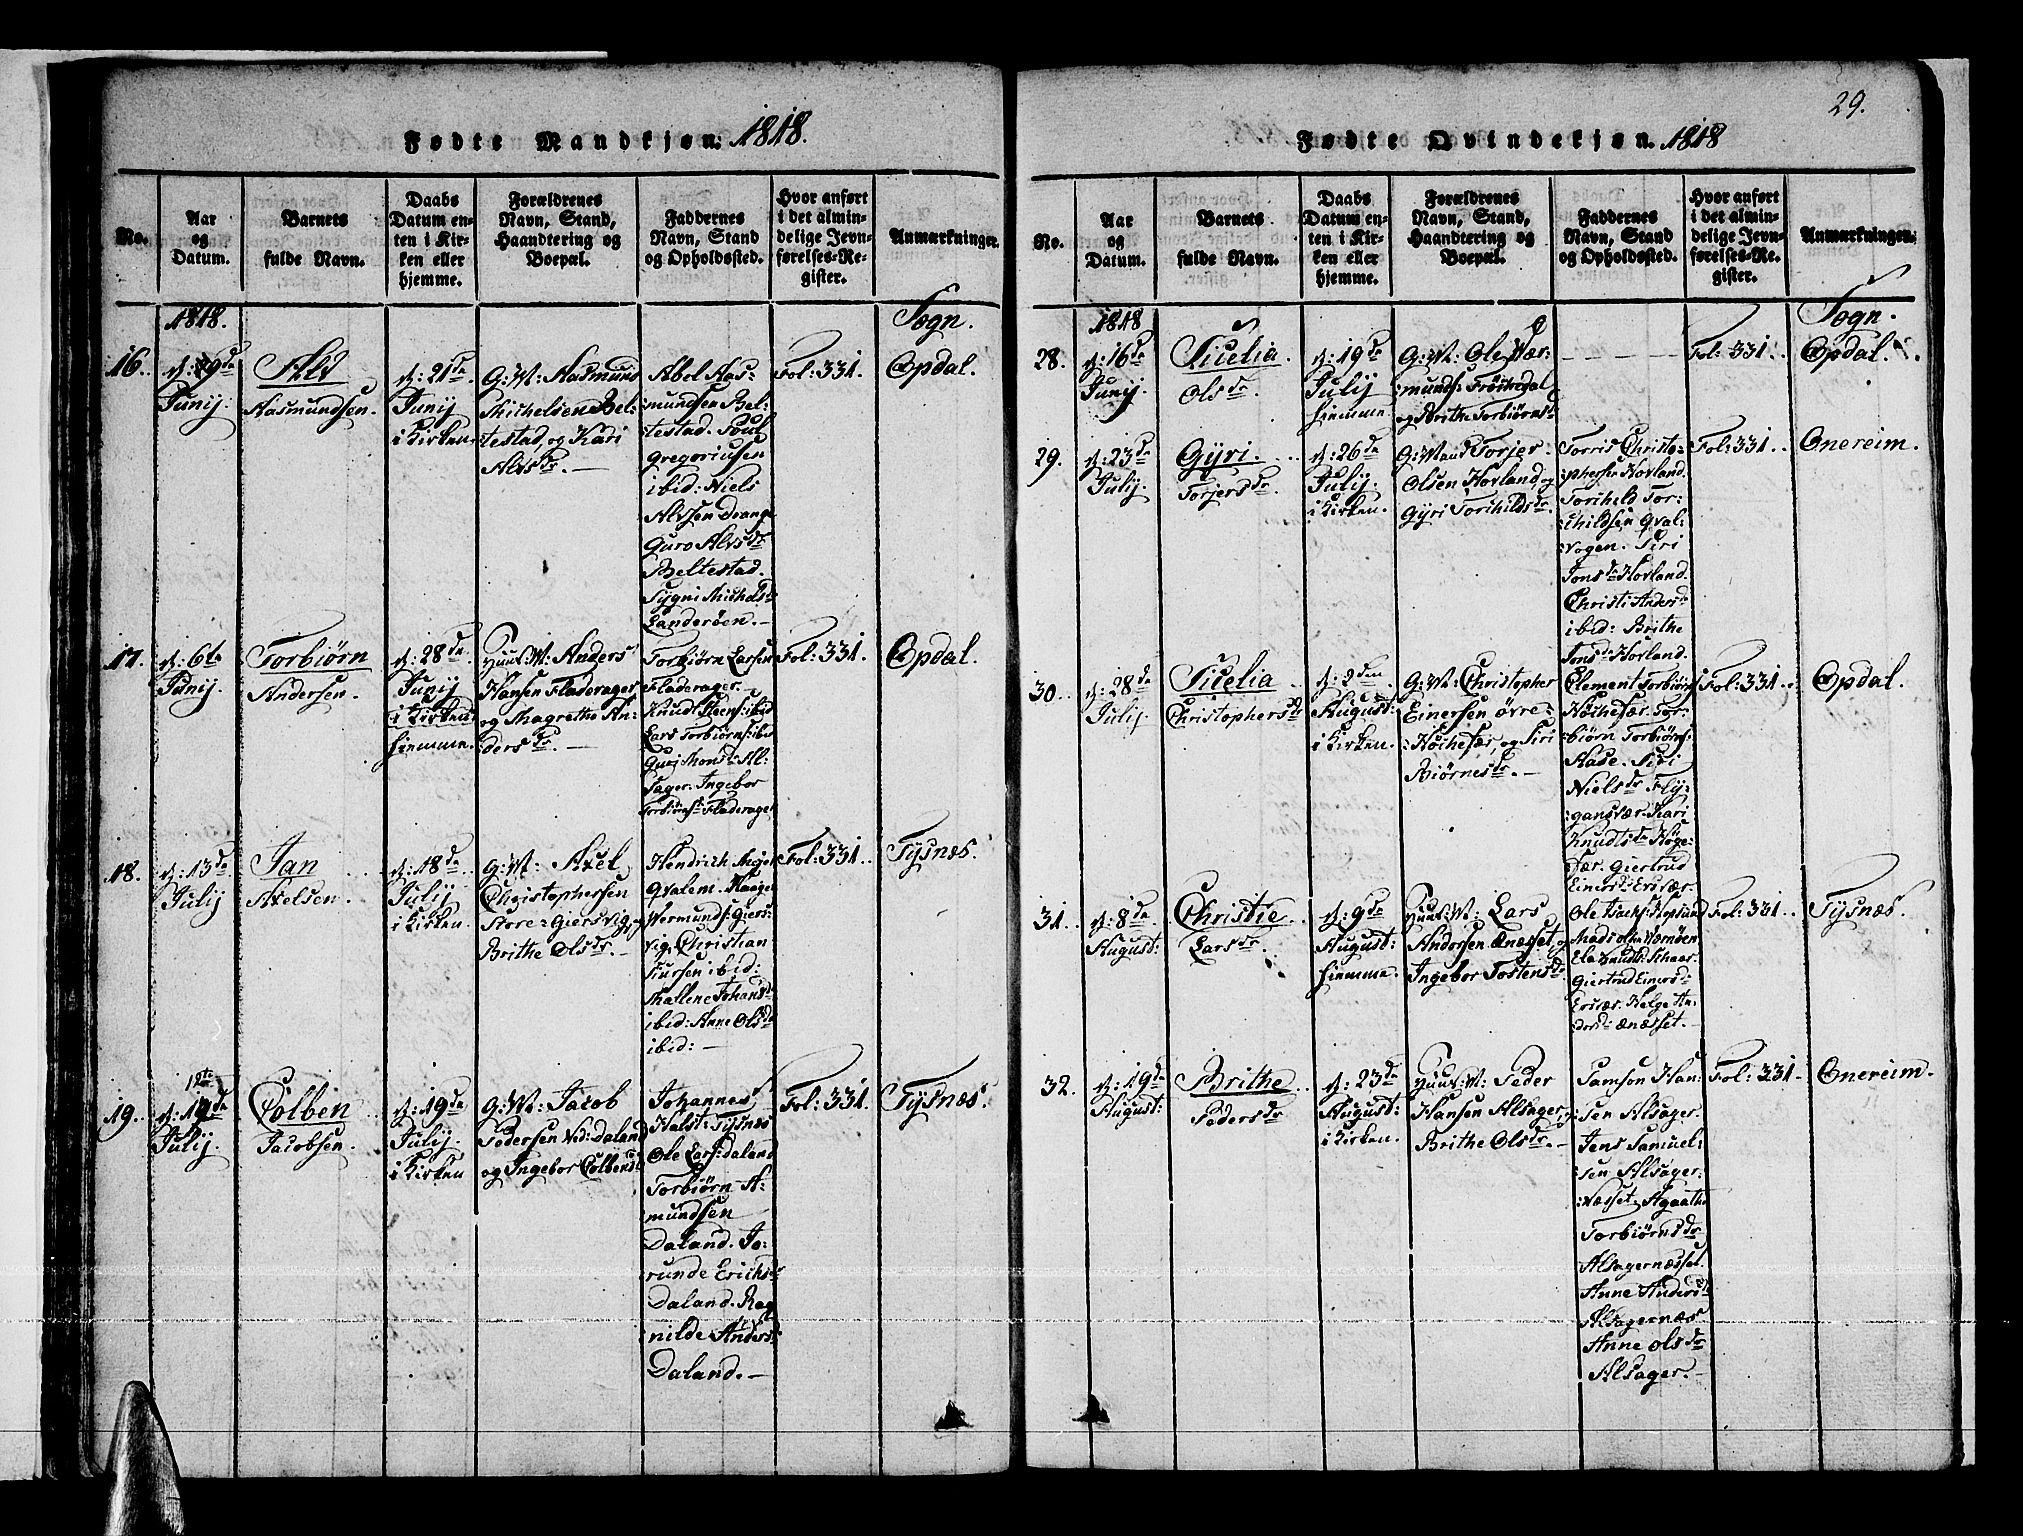 29.
Fødte Mandkjøn. 1818.
No.
Aar
og
Datum.
Barnets
fulde Navn.
Daabs
Datum en-
ten i Kir-
ken eller
hjemme.
Forældrenes
Navn, Stand,
Haandtering og
Boepæl.
Faddernes
Navn, Stand
og Opholdssted.
Hvor anført
i det almin-
delige Jevn-
førelses-Re-
gister.
Anmærkninger.
1818.
Sogn.
16.
Junij.
Alv
Aasmundsen.
d: 21de
Junij
i Kirken.
G: M: Aasmund
Michelsen Bel-
testad, og Kari
Alvsdr. —
Abel Aas-
mundsen Bel-
testad. Poul
Gregoriusen
ibid: Niels
Alvsen Drange
Guro Alvsdr
Beltestad.
Sygni Michelsdr
Landerøen. —
Fol: 331.
Opdal.
17.
d: 6te
Junij.
Torbiørn
Andersen.
d: 28de
Junij
i Kirken.
hiemme.
Huus: M: Anders
Hansen Fladerager,
og Magrethe An-
dersdr. —
Torbiørn Larsen
Fladerager.
Lars Torbiørns: ibid
sager. Ingebor
Fladerager
Fol: 331.
Opdal.
18.
d: 13de
Julij
Jan
Axelsen.
d: 18de
Julij
i Kirken.
G: M: Axel
Christophersen
Store-Giersvig, og
Brithe Olsdr. —
Hendrich Meyer
Gvalem. Haagen
Wermunds: Giers-
vig. Christian
ibid:
Mallene Johansdr
ibid: Anne Olsdr
ibid: —
Fol: 331.
Tysnæs.
19.
12te
Julij
Colben
Jacobsen.
d: 19de
Julij.
i Kirken
G: M: Jacob
Pedersen Nid: Daland
og Ingebor Colbensdr
Johannes
Halst: Tysnæs
Ole Lars: Daland
Torbiørn A-
mundsen
Daland. Jo-
runde Erichsdr
Daland. Rag
nilde Andersdr
Daland. —
Fol: 331.
Tysnæs.
Fødte Qvindekjøn. 1818
No.
Aar
og
Datum.
Barnets
fulde Navn.
Daabs
Datum en-
ten i Kir-
ken eller
hjemme.
Forældrenes
Navn, Stand,
Haandtering og
Boepæl.
Faddernes
Navn, Stand
og Opholdssted.
Hvor anført
i det almin-
delige Jevn-
førelses-Re-
gister.
Anmærkninger.
1818
Sogn.
28.
d: 16de
Junij.
Sicelia
Olsdr.
d: 19de
Julij
hiemme.
G: M: Ole Wær-
munds: Frøchedal
og Brithe Torbiørnsdr
Fol: 331.
Opdal.
29.
d: 23de
Julij.
Gyri
Torjersdr.
d: 26de
Julij.
i Kirken.
G: Mand Torjer
Olsen Hovland, og
Gyri Torchildsdr.
Torris Christo-
phersen Hovland.
Torcheld Tor-
childsen Qval-
vogen. Siri
Jonsdr Hovland.
Christi Andersdr
ibid: Brithe
Jonsdr Hovland.
Fol: 331.
Onereim.
30.
d: 28de
Julij.
Sicelia
Christophersdr
d: 2den
August:
i Kirken.
G: M: Christopher
Einersen øvre-
Høchesær, og Siri
Biørnesdr. —
Clement Torbiørns:
Høchesær. Tor-
biørn Torbiørns:
Aase. Siri
Nielsdr Fly-
gansvær. Kari
Knudtsdr Høge-
sær. Giertrud
Einersd: Ersvær.
Fol: 331.
Opdal.
31.
d: 8de
August:
Christie
Larsdr.
d: 9de
August:
hiemme.
Huus: M: Lars
Andersen Ænæsset, og
Ingebor Tostensdr
Giertrud Einersd:
Ersvær. Helge An-
dersd: Ænæsset. —
Fol: 331.
Tysnæs.
32.
d: 19de
August:
Brithe
Pedersdr
d: 23de
August:
i Kirken.
Huus: M: Peder
Hansen Alsager, og
Brithe Olsdr. —
Samson Han-
sen Alsager.
Jens Samuel-
sen Alsager-
næsset. Agaathe
Torbiørnsdr
Alsagernæsset.
Anne Andersdr
Alsagernæs
Anne Olsdr
Alsager. —
Fol: 331.
Onereim.